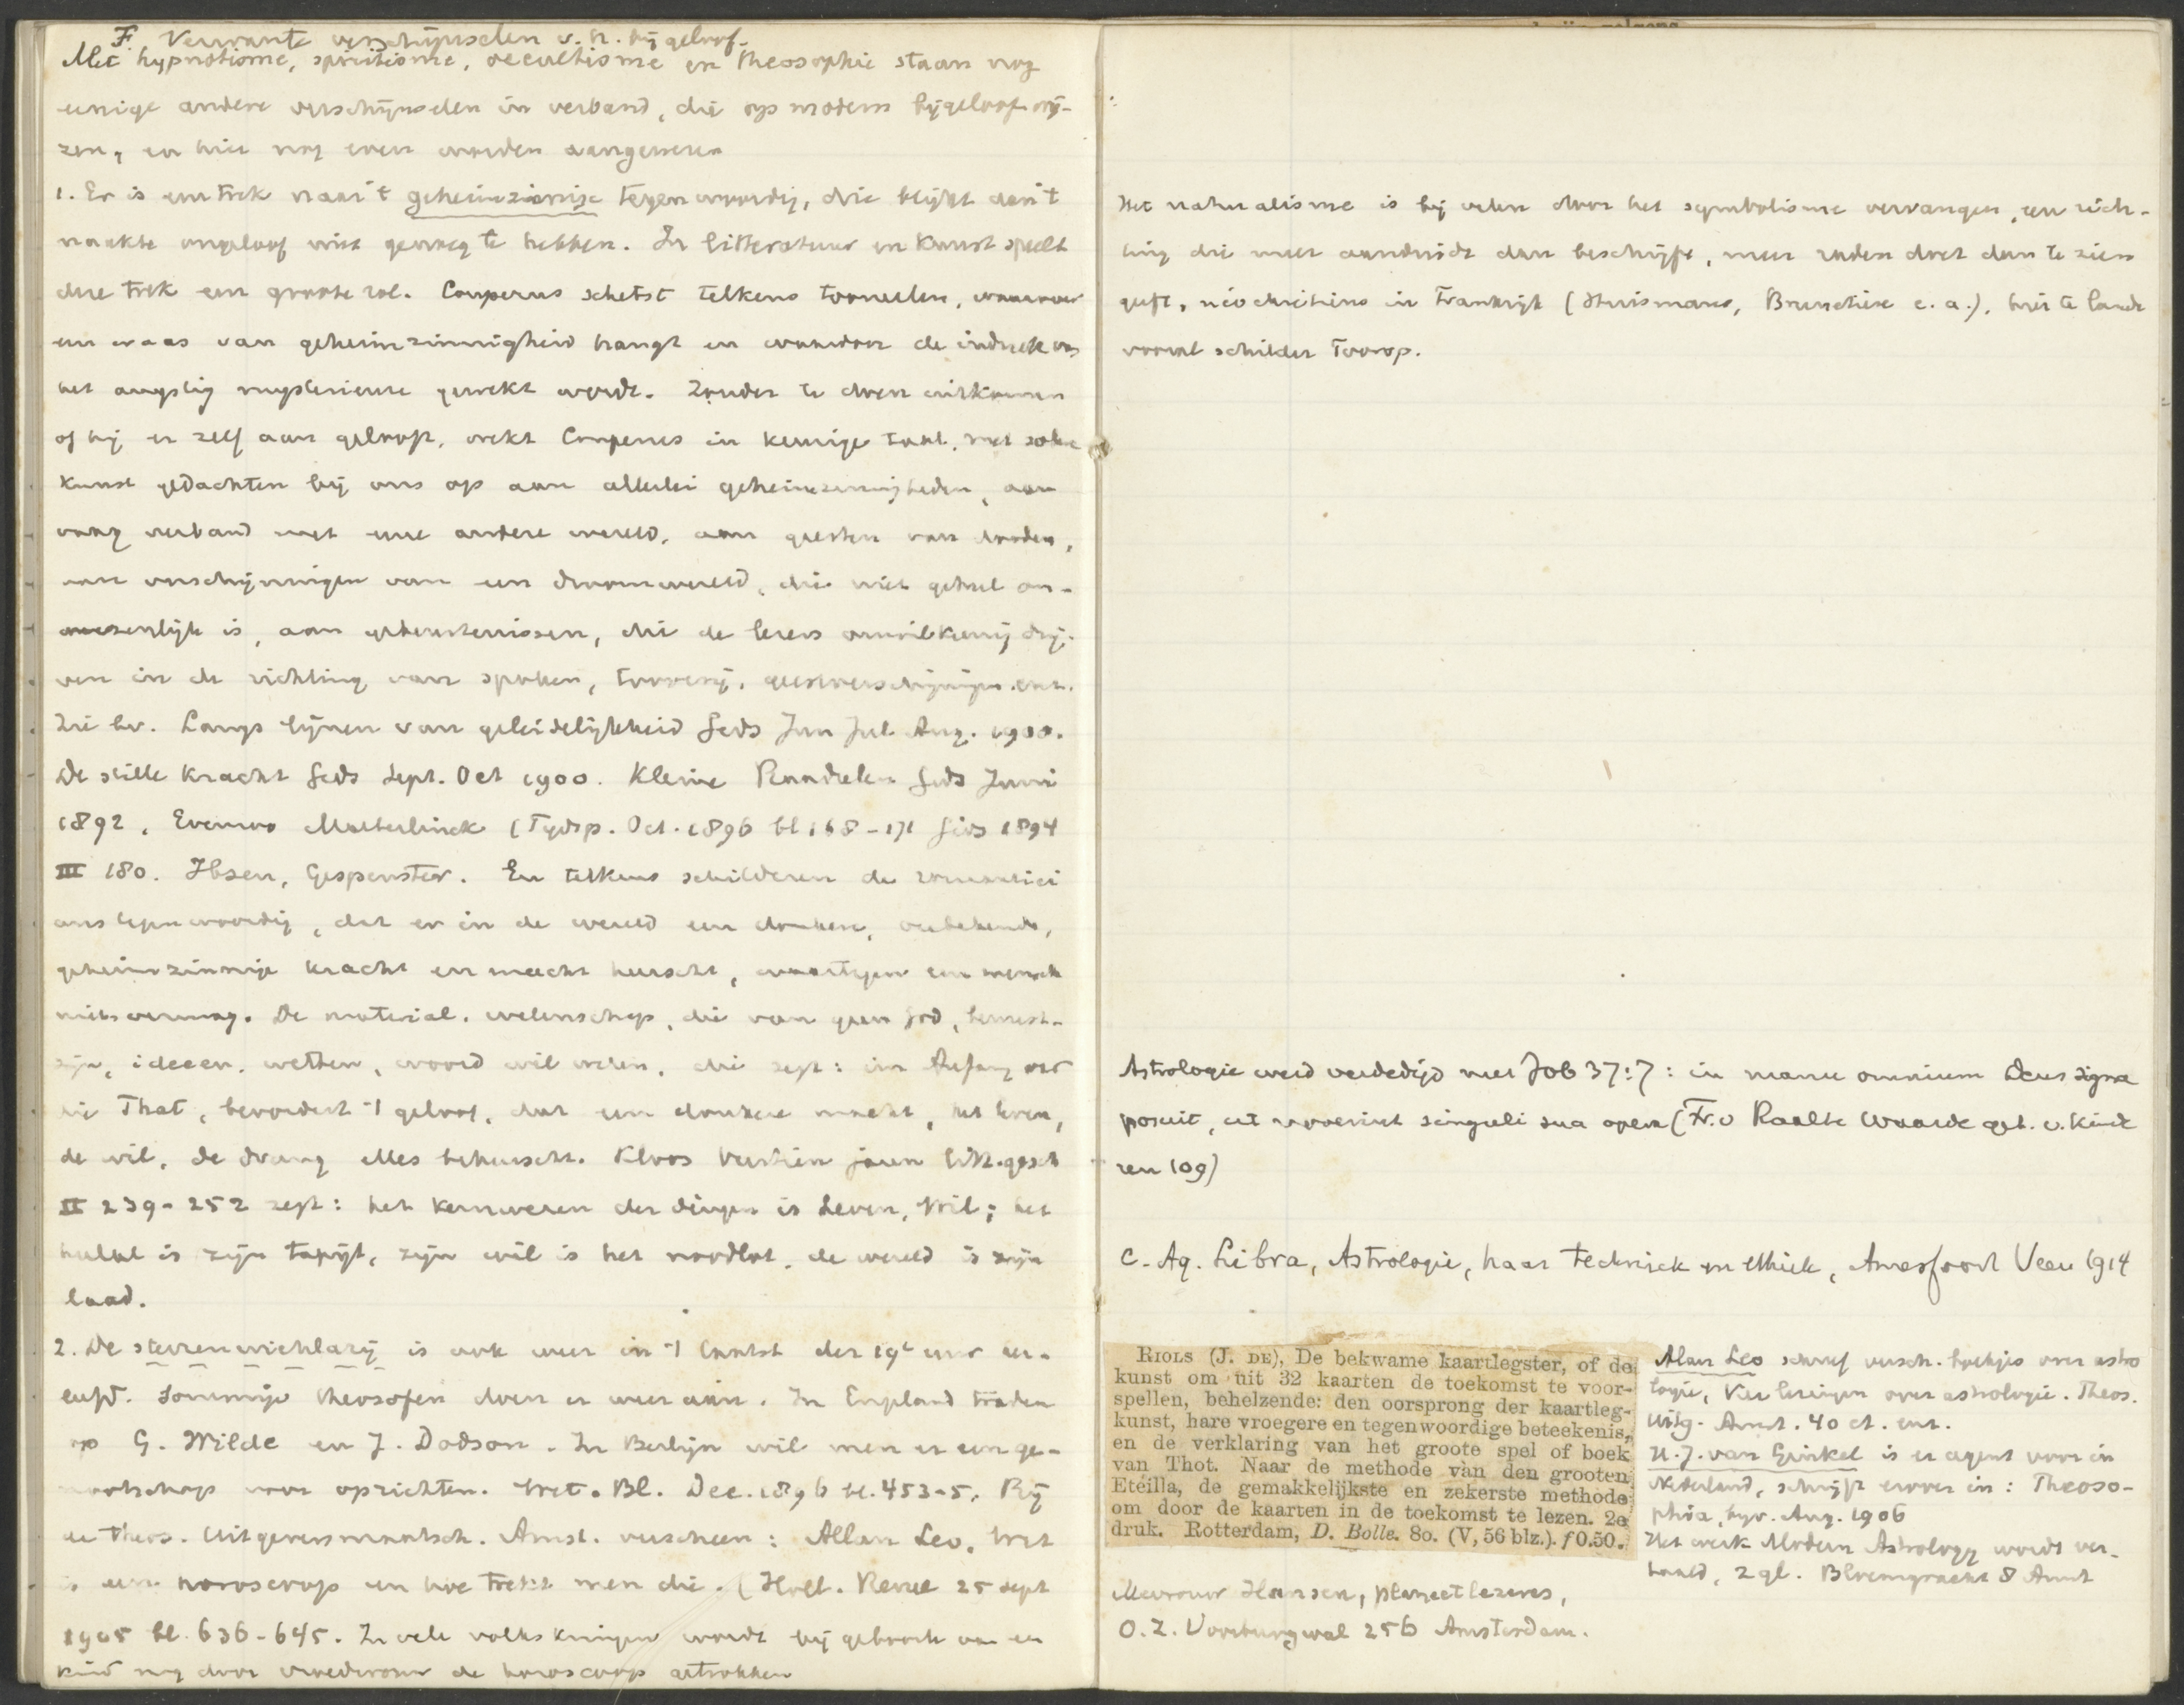 F. Verwante verschijnselen v.h. bijgeloof.
Met hypnotisme, spiritisme, occultisme en theosophie staan nog
eenige andere verschijnselen in verband, die op modern bijgeloof wij-
zen, en hier nog even worden aangewezen
1. Er is een trek naar 't geheimzinnige tegenwoordig, die blijkt aan 't
naakte ongeloof niet genoeg te hebben. In litteratuur en kunst speelt
die trek een groote rol. Couperus schetst telkens tooneelen, waarover
een waas van geheimzinnigheid hangt en waardoor de indruk van
het angstig mysterieuse gewekt wordt. Zonder te doen uitkomen
of hij er zelf aan gelooft, wekt Couperus in keurige taal, met
kunst gedachten bij ons op aan allerlei geheimzinnigheden, aan
vaag verband met eene andere wereld, aan geesten van dooden,
aan verschijningen van een droomwereld, die niet geheel on-
wezenlijk is, aan gebeurtenissen, die de lezers onwillekeurig drij-
ven in de richting van spoken, tooverij, geestverschijningen enz.
Zie bv. Langs lijnen van geleidelijkheid Gids Jun Jul Aug. 1900.
De stille kracht Gids Sept. Oct 1900. Kleine Raadselen Gids Juni
1892. Evenzoo Maeterlinck (Tydsp. Oct. 1896 bl 168-171 Gids 1894
III 180. Ibsen, Gespenster. En telkens schilderen de romantici
ons tegenwoordig, dat er in de wereld een donkere, onbekende,
geheimzinnige kracht en macht heerscht, waartegen een mensch
niets vermag. De material. wetenschap, die van geen God, bewust-
zijn, ideeen, wetten, woord wil weten, die zegt: im Anfang war
die That, bevordert 't geloof, dat een donkere macht, het leven,
de wil, de drang alles beheerscht. Kloos Veertien jaren litt.gesch
II 239-252 zegt: het kernwezen der dingen is Leven, Wil; het
heelal is zijn tapijt, zijn wil is het noodlot, de wereld is zijn
2. De sterrenwichlarij is ook weer in 't laatst der 19e eeuw her-
leefd. Sommige theosofen doen er weer aan. In Engeland traden
op G. Wilde en J. Dodson. In Berlijn wil men er een ge-
nootschap voor oprichten. Wet. Bl. Dec. 1896 bl. 453-5. Bij
de Theos. Uitgeversmaatsch. Amst. verscheen: Allan Leo, Wat
is een horoscoop en hoe trekt men die. (Holl. Revue 25 sept
1905 bl. 636-645. In vele volkskringen wordt bij geboorte van een
kind nog door vroedvrouw de horoscoop getrokken
Het naturalisme is bij velen door het symbolisme vervangen, een rich-
ting die meer aanduidt dan beschrijft, meer raden doet dan te zien
geeft, néochrétiens in Frankrijk (Huismans, Brunetière e.a.), hier te lande
vooral schilder Toorop.
Astrologie werd verdedigd met Job 37:7: in manu omnium Deus signa
posuit, ut noverint singuli sua opera (Fr. v Raalte Waarde geb. v. Kinde
ren 109)
C. Aq. Libra, Astrologie, haar techniek en ethiek, Amersfoort Veen 1914
RIOLS (J. DE), De bekwame kaartlegster, of de
kunst om uit 32 kaarten de toekomst te voor-
spellen, behelzende: den oorsprong der kaartleg-
kunst, hare vroegere en tegenwoordige beteekenis,
en de verklaring van het groote spel of boek
van Thot. Naar de methode van den grooten
Etéilla, de gemakkelijkste en zekerste methode
om door de kaarten in de toekomst te lezen. 2e
druk. Rotterdam, D. Bolle. 8o. (V, 56 blz.). f 0.50.
Alan Leo schreef versch. boekjes over astro
logie, Vier lezingen over astrologie. Theos.
Uitg. Amst. 40 ct. enz.
H. J. van Ginkel is er agent voor in
Nederland, schrijft erover in: Theoso-
phia, bijv. Aug. 1906
Het werk Modern Astrology wordt ver-
taald, 2 gl. Bloemgracht 8 Amst
Mevrouw Hansen, planeetlezeres,
O. Z. Voorburgwal 256 Amsterdam.